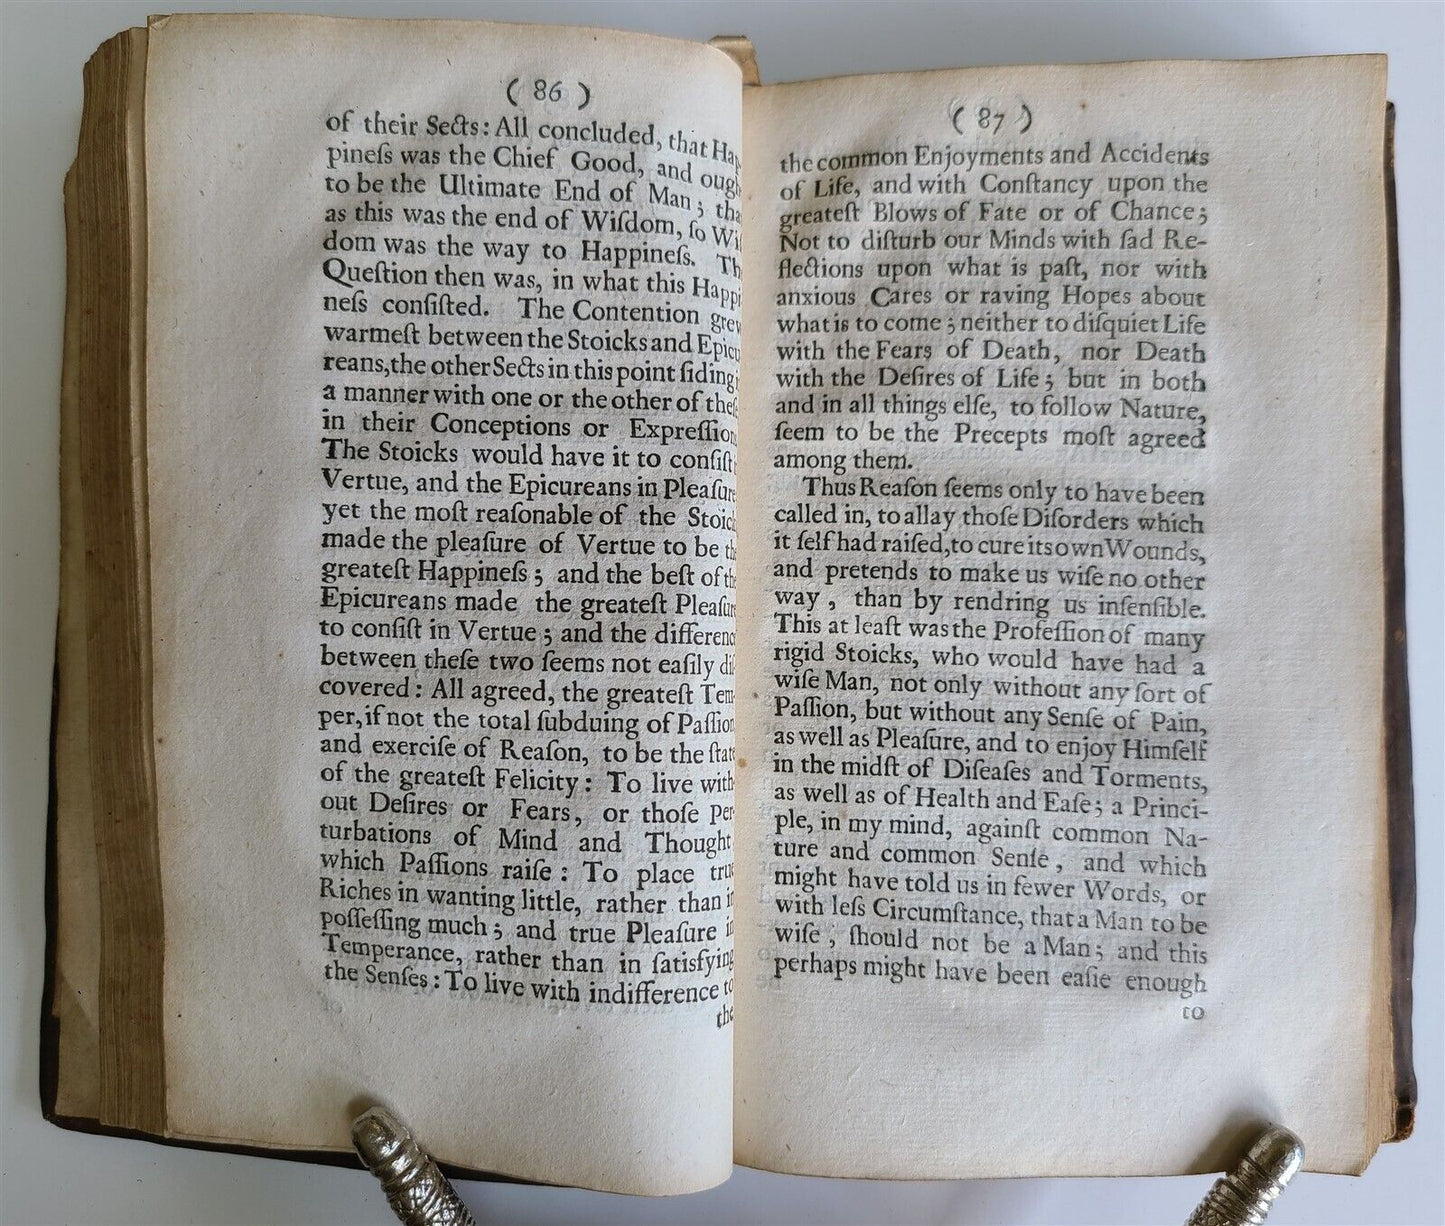 ( 86 )
of their Sects: All concluded, that Hap
pineſs was the Chief Good, and ough
to be the Ultimate End of Man; tha
as this was the end of Wiſdom, ſo Wiſ
dom was the way to Happineſs. Th
Queſtion then was, in what this Happi
neſs conſiſted. The Contention grew
warmeſt between the Stoicks and Epicu
reans, the other Sects in this point ſiding i
a manner with one or the other of theſe
in their Conceptions or Expreſſion
The Stoicks would have it to conſiſt i
Vertue, and the Epicureans in Pleaſure
yet the moſt reaſonable of the Stoic
made the pleaſure of Vertue to be th
greateſt Happineſs; and the beſt of th
Epicureans made the greateſt Pleaſur
to conſiſt in Vertue; and the differenc
between theſe two ſeems not eaſily diſ
covered: All agreed, the greateſt Tem
per, if not the total ſubduing of Paſſion
and exerciſe of Reaſon, to be the ſtate
of the greateſt Felicity: To live with
out Deſires or Fears, or thoſe Per
turbations of Mind and Thought
which Paſſions raiſe: To place true
Riches in wanting little, rather than in
poſſeſſing much; and true Pleaſure in
Temperance, rather than in ſatisfying
the Senſes: To live with indifference to
the
( 87 )
the common Enjoyments and Accidents
of Life, and with Conſtancy upon the
greateſt Blows of Fate or of Chance;
Not to diſturb our Minds with ſad Re-
flections upon what is paſt, nor with
anxious Cares or raving Hopes about
what is to come; neither to diſquiet Life
with the Fears of Death, nor Death
with the Deſires of Life; but in both
and in all things elſe, to follow Nature,
ſeem to be the Precepts moſt agreed
among them.
Thus Reaſon ſeems only to have been
called in, to allay thoſe Diſorders which
it ſelf had raiſed, to cure its own Wounds,
and pretends to make us wiſe no other
way, than by rendring us inſenſible.
This at leaſt was the Profeſſion of many
rigid Stoicks, who would have had a
wiſe Man, not only without any ſort of
Paſſion, but without any Senſe of Pain,
as well as Pleaſure, and to enjoy Himſelf
in the midſt of Diſeaſes and Torments,
as well as of Health and Eaſe; a Princi-
ple, in my mind, againſt common Na-
ture and common Senſe, and which
might have told us in fewer Words, or
with leſs Circumſtance, that a Man to be
wiſe, ſhould not be a Man; and this
perhaps might have been eaſie enough
to